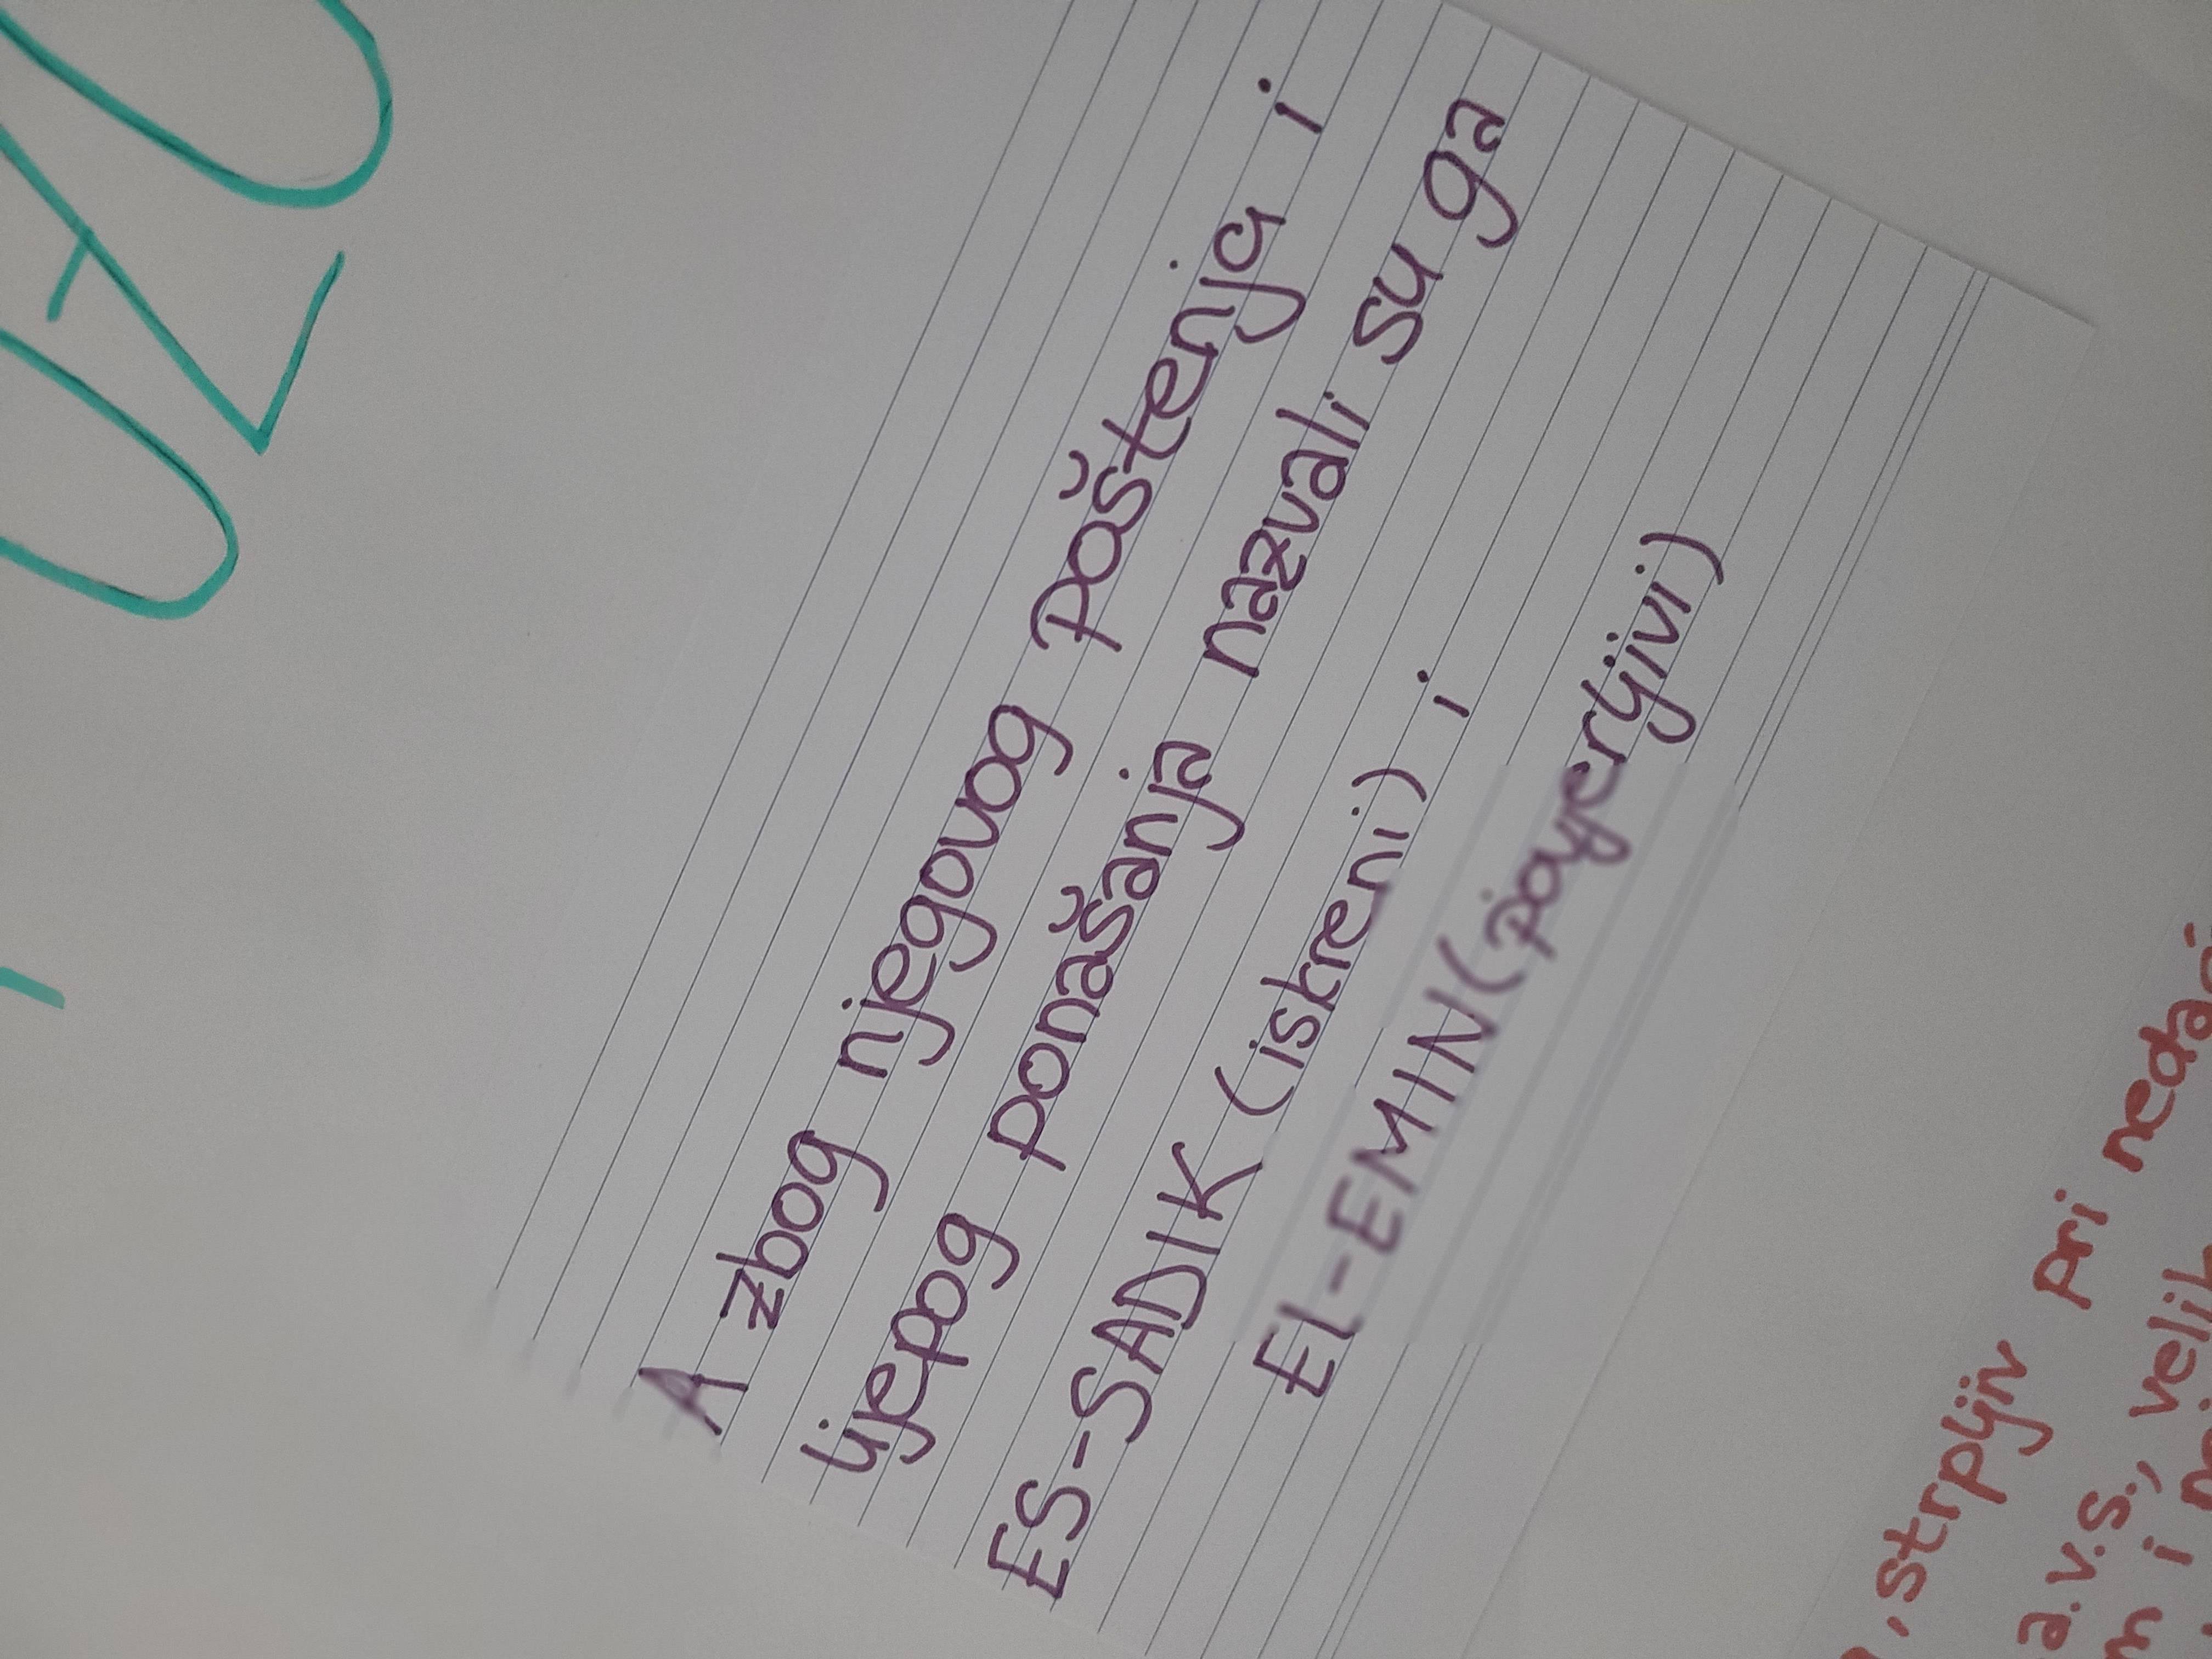 UZO
A zbog njegovog poštenja i
lijepog ponašanja nazvali su ga
ES-SADIK (iskreni) i
El-EMIN (povjerljivi)
, strpljiv pri nedać
a.v.s., velik
m i